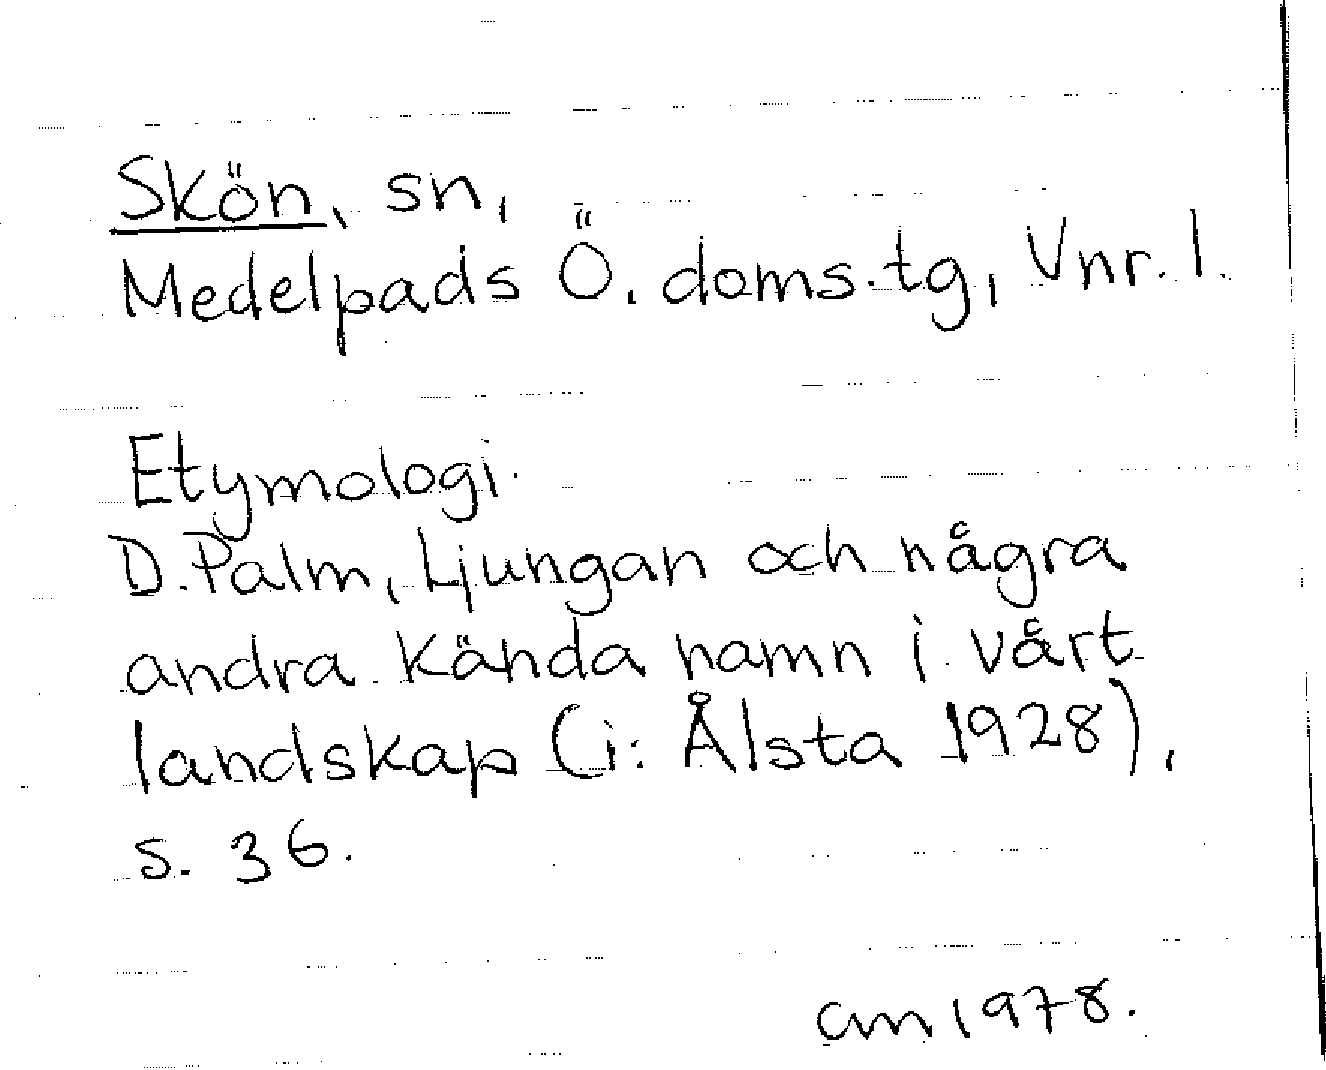 Skön, sn,
Medelpads Ö. doms.tg, Vnr. 1.
Etymologi.
D. Palm, Ljungan och några
andra kända namn i vårt
landskap (i: Ålsta 1928),
s. 36.
am 1978.